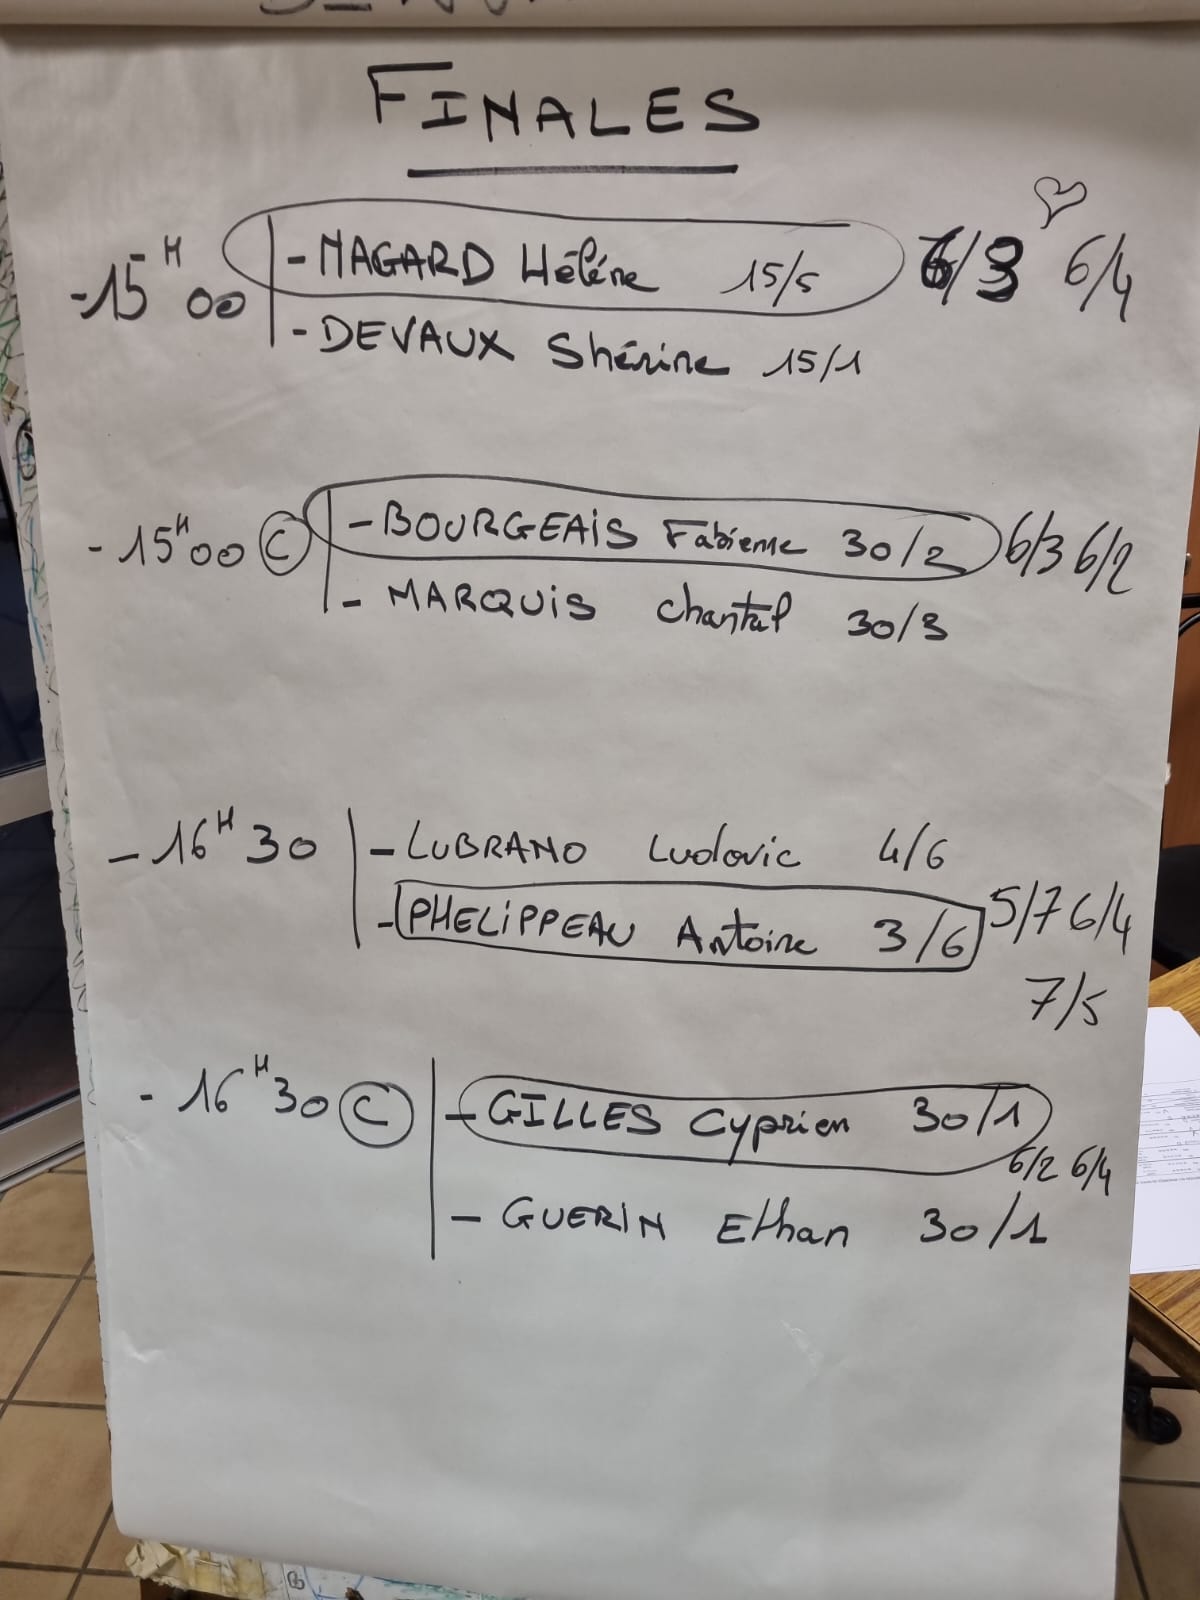 FINALES
-15H00 - MAGARD Hélène 15/5 6/3 6/4
- DEVAUX Shérine 15/1
-15H00 C - BOURGEAIS Fabienne 30/2 6/3 6/2
- MARQUIS Chantal 30/3
-16H30 - LUBRANO Ludovic 4/6
- PHELIPPEAU Antoine 3/6 5/7 6/4
7/5
-16H30 C - GILLES Cyprien 30/1
6/2 6/4
- GUERIN Ethan 30/1